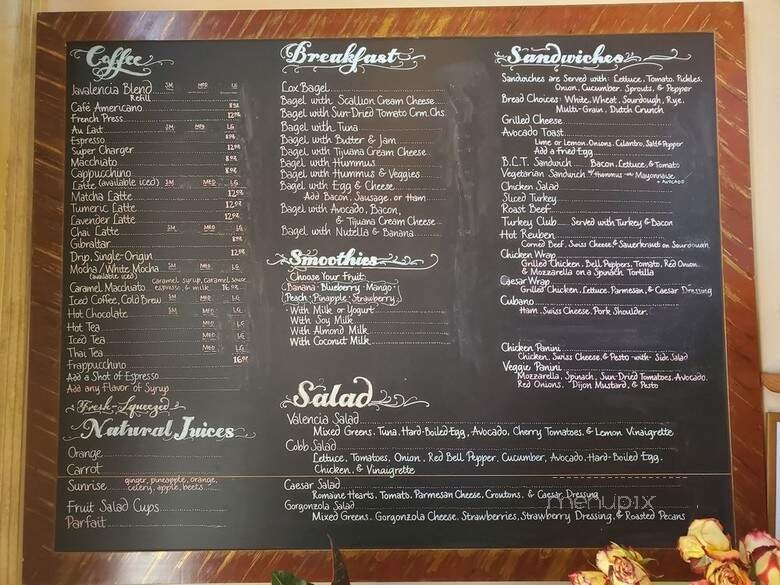 Coffee
Javalencia Blend SM MED LG
Refill
Café Americano 8oz
French Press 12oz
Au Lait SM MED LG
Espresso 8oz
Super Charger 12oz
Macchiato 8oz
Cappuccino 8oz
Latte (available iced) SM MED LG
Matcha Latte 12oz
Tumeric Latte 12oz
Lavender Latte 12oz
Chai Latte SM MED LG
Gibraltar 8oz
Drip, Single-Origin 12oz
Mocha/White Mocha SM MED LG
(available iced)
Caramel Macchiato caramel syrup, caramel sauce
espresso, & milk 16oz
Iced Coffee, Cold Brew SM MED LG
Hot Chocolate SM MED LG
Hot Tea MED LG
Iced Tea MED LG
Thai Tea MED LG
Frappucchino 16oz
Add a Shot of Espresso
Add any Flavor of Syrup
Fresh-Squeezed
Natural Juices
Orange
Carrot
Sunrise ginger, pineapple, orange,
celery, apple, beets
Fruit Salad Cups
Parfait
Breakfast
Lox Bagel
Bagel with Scallion Cream Cheese
Bagel with Sun-Dried Tomato Crm. Chs.
Bagel with Tuna
Bagel with Butter & Jam
Bagel with Tijuana Cream Cheese
Bagel with Hummus
Bagel with Hummus & Veggies
Bagel with Egg & Cheese
Add Bacon, Sausage, or Ham
Bagel with Avocado, Bacon,
& Tijuana Cream Cheese
Bagel with Nutella & Banana
Smoothies
Choose Your Fruit:
Banana • Blueberry • Mango •
Peach • Pineapple • Strawberry
- With Milk or Yogurt
- With Soy Milk
- With Almond Milk
- With Coconut Milk
Sandwiches
Sandwiches are Served with: Lettuce, Tomato, Pickles,
Onion, Cucumber, Sprouts, & Pepper
Bread Choices: White, Wheat, Sourdough, Rye,
Multi-Grain, Dutch Crunch
Grilled Cheese
Avocado Toast
Lime or Lemon, Onions, Cilantro, Salt & Pepper
Add a Fried Egg
B.L.T. Sandwich Bacon, Lettuce, & Tomato
Vegetarian Sandwich w/ Hummus or Mayonnaise
+ AVOCADO
Chicken Salad
Sliced Turkey
Roast Beef
Turkey Club Served with Turkey & Bacon
Hot Reuben
Corned Beef, Swiss Cheese, & Sauerkraut on Sourdough
Chicken Wrap
Grilled Chicken, Bell Peppers, Tomato, Red Onion
& Mozzarella on a Spinach Tortilla
Caesar Wrap
Grilled Chicken, Lettuce, Parmesan, & Caesar Dressing
Cubano
Ham, Swiss Cheese, Pork Shoulder
Chicken Panini
Chicken, Swiss Cheese, & Pesto with Side Salad
Veggie Panini
Mozzarella, Spinach, Sun Dried Tomatoes, Avocado,
Red Onions, Dijon Mustard, & Pesto
Salad
Valencia Salad
Mixed Greens, Tuna, Hard-Boiled Egg, Avocado, Cherry Tomatoes, & Lemon Vinaigrette
Cobb Salad
Lettuce, Tomatoes, Onion, Red Bell Pepper, Cucumber, Avocado, Hard-Boiled Egg,
Chicken, & Vinaigrette
Caesar Salad
Romaine Hearts, Tomato, Parmesan Cheese, Croutons, & Caesar Dressing
Gorgonzola Salad
Mixed Greens, Gorgonzola Cheese, Strawberries, Strawberry Dressing, & Roasted Pecans
menupix